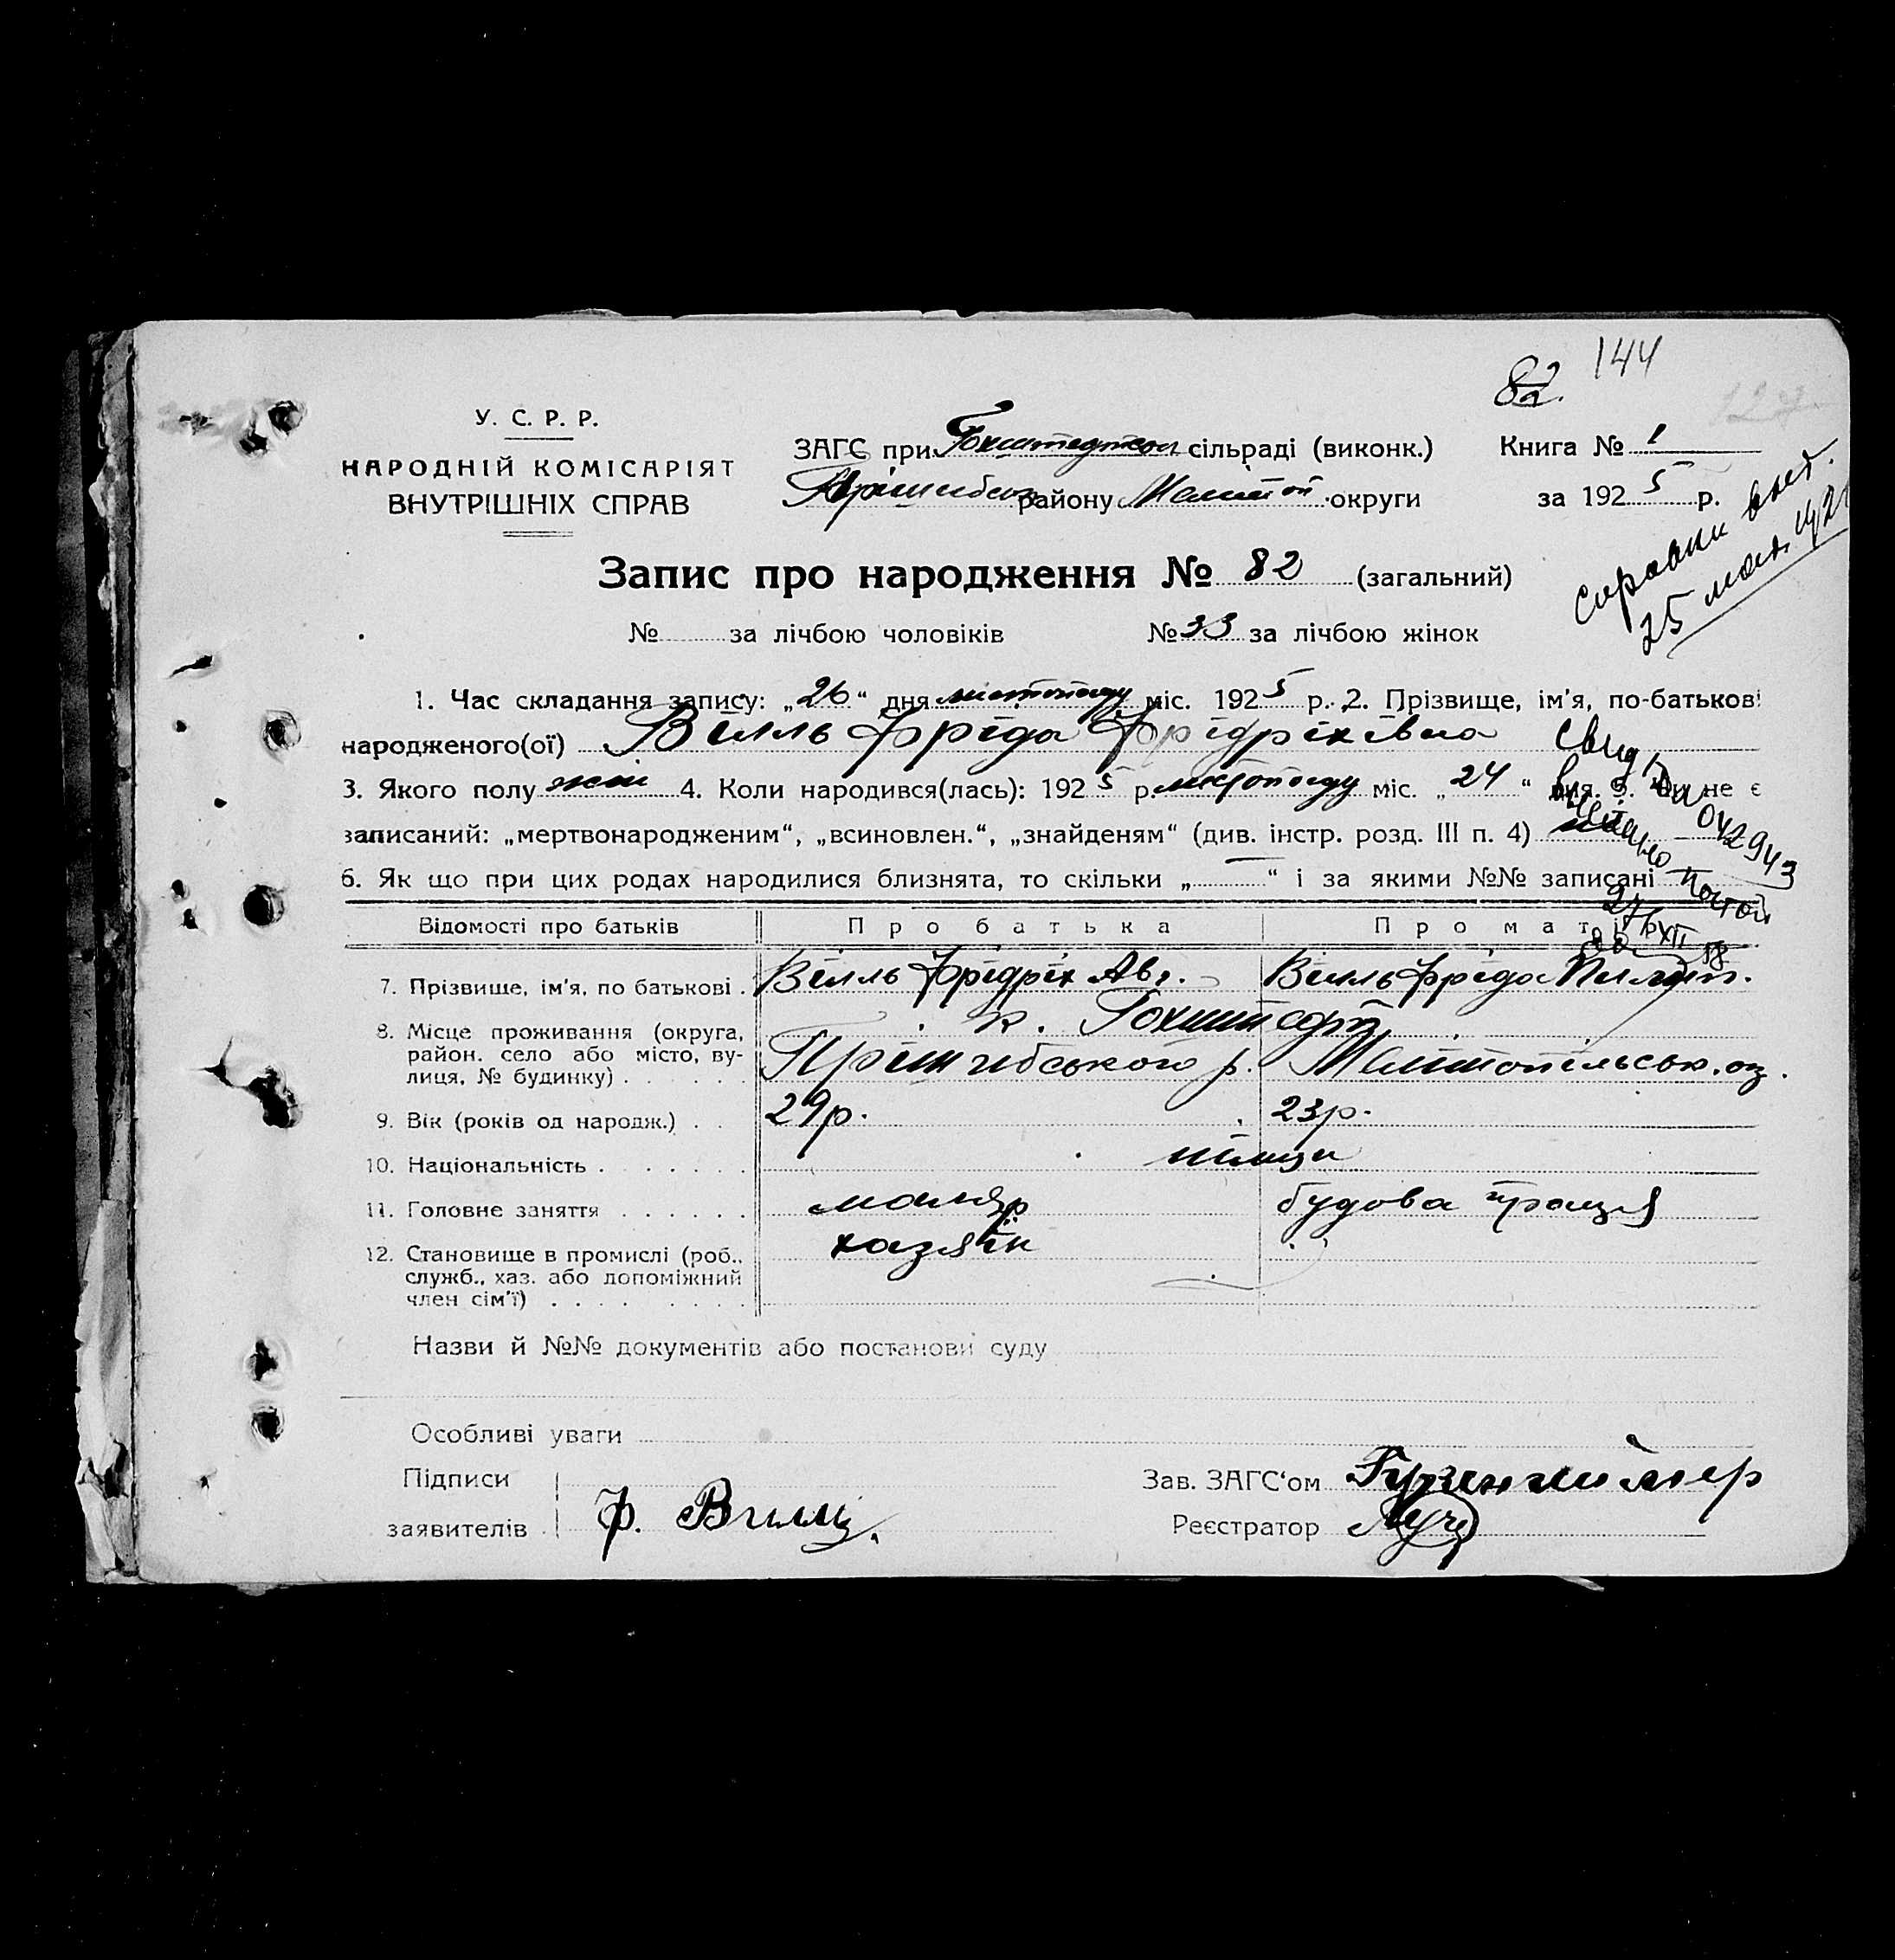 82. 144
У. С. Р. Р.
НАРОДНІЙ КОМІСАРІЯТ
ВНУТРІШНІХ СПРАВ
ЗАГС при Гохштедтськ сільраді (виконк.)
Книга № 1
району Меліт округи
за 1925 р.
справки
Запис про народження № 82 (загальний)
25
№ за лічбою чоловіків № 33 за лічбою жінок
1. Час складання запису: „26“ дня листопаду міс. 1925 р. 2. Прізвище, ім'я, по-батькові
народженого(ої) Вілль Фріда Фрідріхівна
3. Якого полу жін 4. Коли народився(лась): 1925 р. листопаду міс. „24“ дня. 5. Чи не є
записаний: „мертвонародженим“, „всиновлен.“, „знайденям“ (див. інстр. розд. III п. 4)
6. Як що при цих родах народилися близнята, то скільки „—“ і за якими №№ записані —
042943
27/XII 58
Відомості про батьків Про батька Про матір
7. Прізвище, ім'я, по батькові . Вілль Фрідріх Авг. Вілль Фріда Пилип.
8. Місце проживання (округа, к. Гохштедт
район. село або місто, ву- Прішибського р. Мелітопільськ. ок.
лиця, № будинку) . . . . .
9. Вік (років од народж.) . . 29р. 23р.
10. Національність . . . . . . німци
11. Головне заняття . . . . . . маляр будова праця
12. Становище в промислі (роб., хазяїн
служб., хаз. або допоміжний
член сім'ї) . . . . . . . .
Назви й №№ документів або постанови суду
Особливі уваги
Підписи
заявителів Ф. Вилль
Зав. ЗАГС'ом
Реєстратор